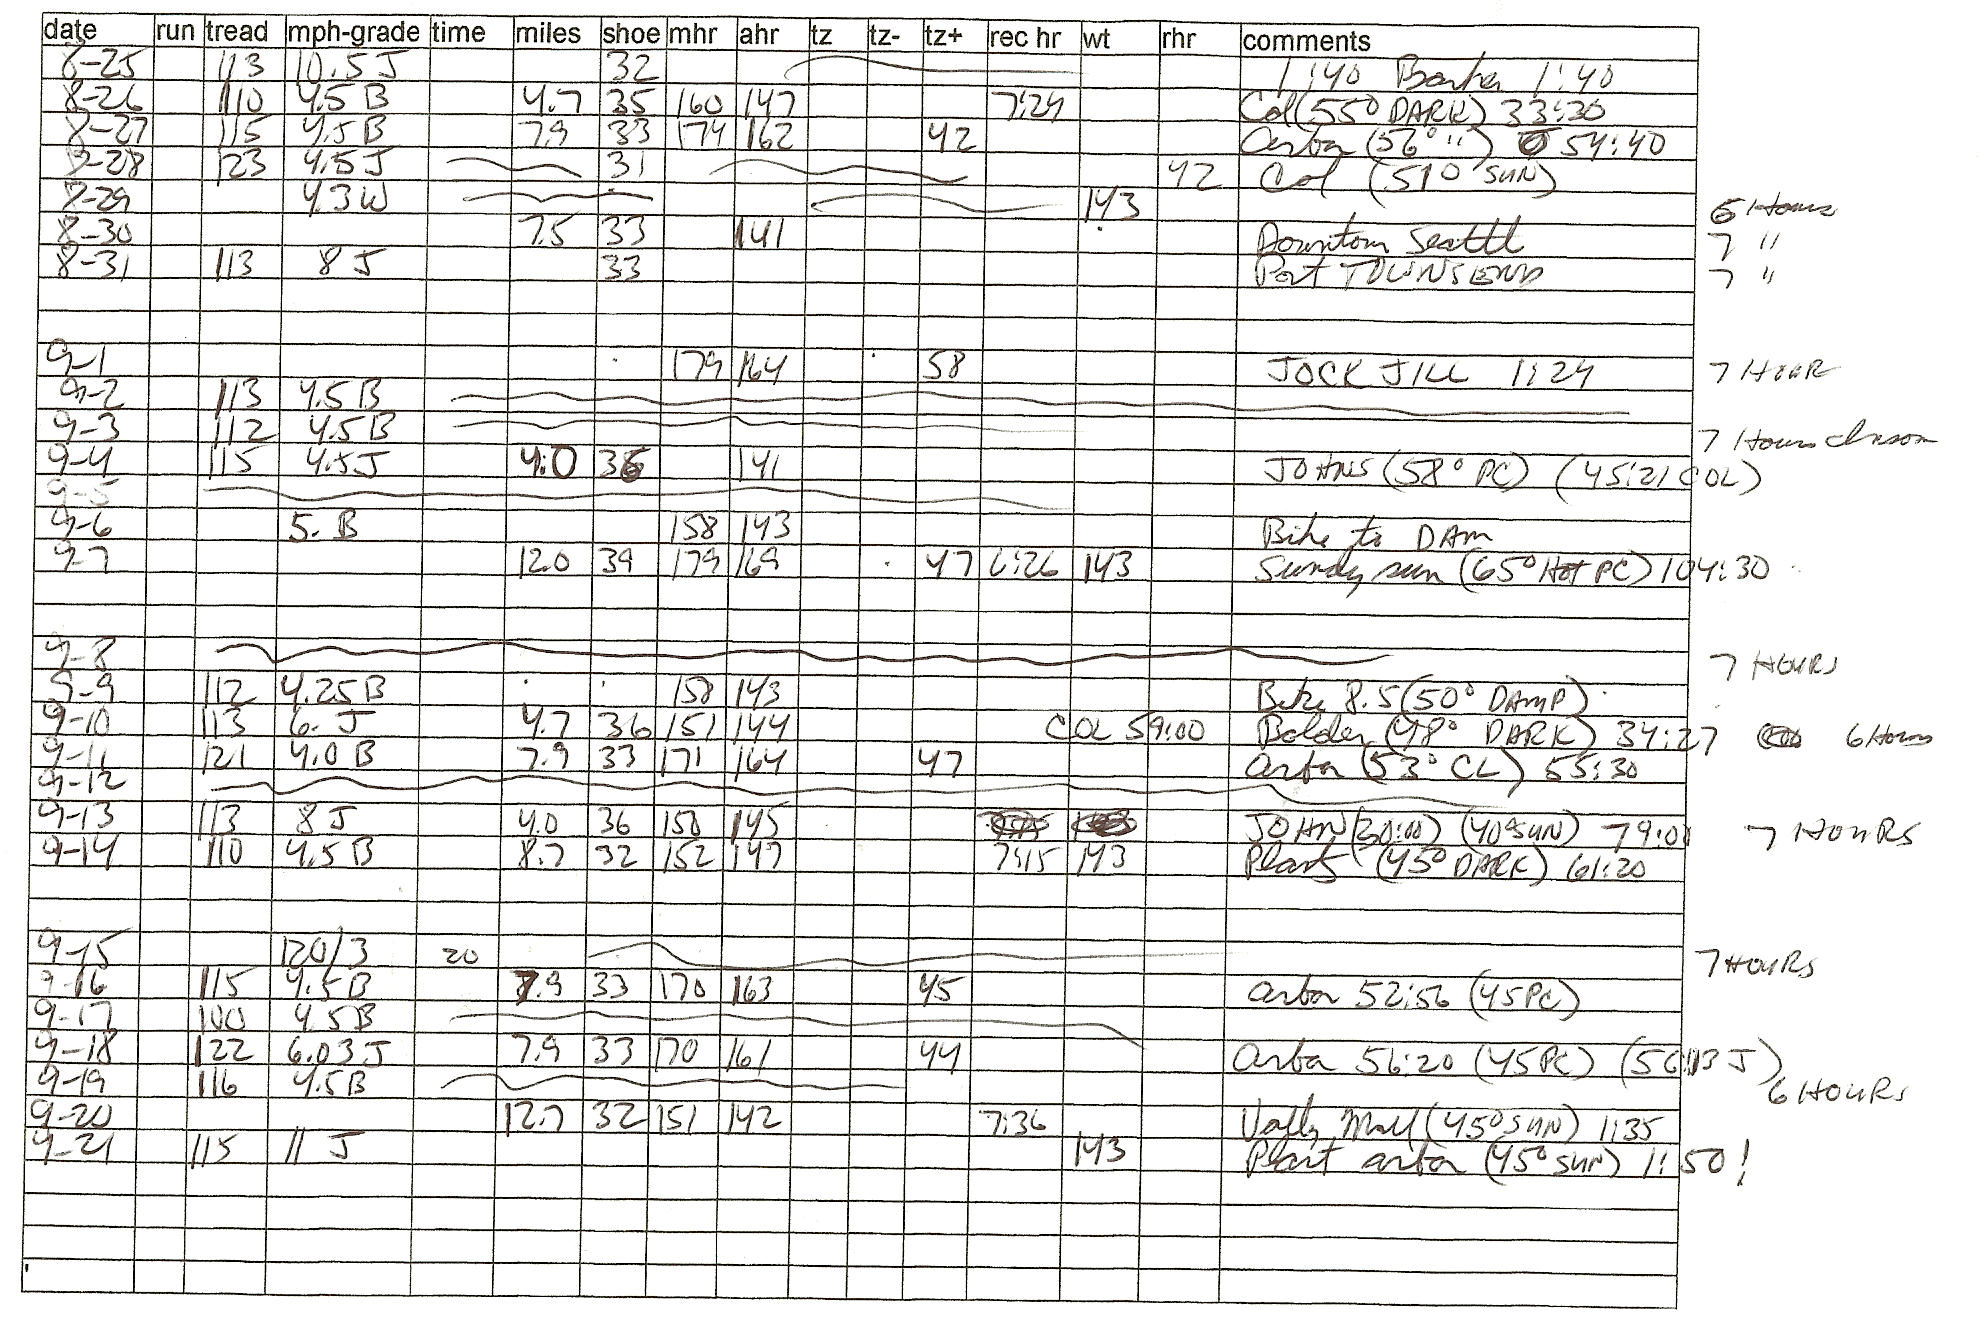 date run tread mph-grade time miles shoe mhr ahr tz tz- tz+ rec hr wt rhr comments
8-25 113 10.5 J 32 1:40 1:40
8-26 110 4.5 B 4.7 35 160 147 7:24 Col (55° DARK) 33:30
8-27 115 4.5 B 7.9 33 174 162 42 Arbor (56° ") 54:40
8-28 123 4.5 J 31 42 Col (51° SUN)
8-29 43 W 143 6 Hours
8-30 7.5 33 141 Downtown Seattl 7 "
8-31 113 8 J 33 Port TOWNSEND 7 "
9-1 179 164 58 JOCK JILL 1:24 7 HOUR
9-2 113 4.5 B
9-3 112 4.5 B 7 Hours
9-4 115 4.5 J 4.0 36 141 JOHNS (58° PC) (45:21 COL)
9-5
9-6 5. B 158 143 Bike to DAM
9-7 12.0 39 179 169 47 6:26 143 Sunday run (65° Hot PC) 104:30
9-8 7 HOURS
9-9 112 4.25 B 158 143 Bike 8.5 (50° DAMP)
9-10 113 6. J 4.7 36 151 144 COL 59:00 Bolder (48° DARK) 34:27 6 Hours
9-11 121 4.0 B 7.9 33 171 164 47 Arbor (53° CL) 55:30
9-12
9-13 113 8 J 4.0 36 158 145 JOHN (30:00) (40° SUN) 79:00 7 HOURS
9-14 110 4.5 B 8.7 32 152 147 7:15 143 Plant (45° DARK) 61:20
9-15 120/3 20 7 HOURS
9-16 115 4.5 B 7.9 33 170 163 45 Arbor 52:56 (45 PC)
9-17 100 4.5 B
9-18 122 6.03 J 7.9 33 170 161 44 Arbor 56:20 (45 PC) (56:13 J)
9-19 116 4.5 B 6 HOURS
9-20 12.7 32 151 142 7:36 Vally Mall (45° SUN) 1:35
9-21 115 11 J 143 Plant arbor (45° SUN) 1:50!